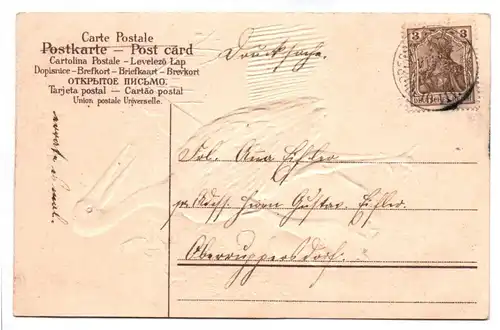 Carte Postale
Postkarte – Post card
Cartolina Postale – Levelező Lap
Dopisnice – Brefkort – Briefkaart – Brevkort
ОТКРЫТОЕ ПИСЬМО.
Tarjeta postal – Cartão postal
Union postale Universelle.
Drucksache.
3 3
Frl. Ana Eifler
pr. Adss. Herrn Gustav Eifler.
Oberruppersdorf.